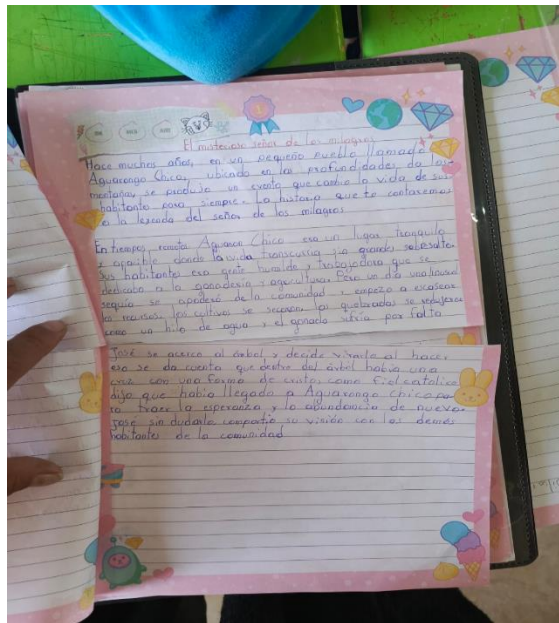 El misterioso señor de los milagros
Hace muchos años, en un pequeño pueblo llamado
Aguarongo Chico, ubicado en las profundidades de las
montañas, se produjo un evento que cambio la vida de sus
habitante para siempre. La historia que te contaremos
es la leyenda del señor de los milagros
En tiempos remota Aguarongo Chico era un lugar tranquilo
y apacible donde la vida transcurría sin grandes sobresaltos
Sus habitantes era gente humilde y trabajadora que se
dedicaba a la ganadería y agricultura. Pero un día una
sequía se apoderó de la comunidad y empezo a escasear
los recursos, los cultivos se secaron las quebradas se redujeron
como un hilo de agua y el ganado sufría por falta
José se acerco al árbol y decide virarlo al hacer
eso se da cuenta que dentro del árbol había una
cruz con una forma de cristo, como fiel catolico
dijo que había llegado a Aguarongo Chico pa-
ra traer la esperanza y la abundancia de nuevo.
José sin dudarlo compartió su visión con los demás
habitantes de la comunidad